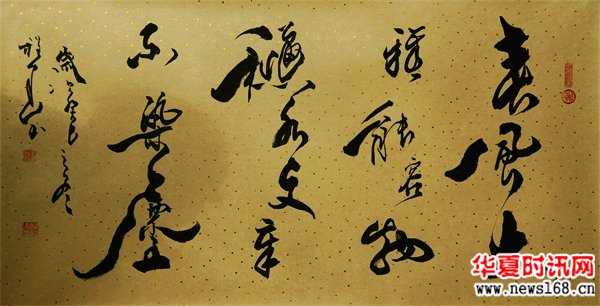 春風大
雅能容物
穐水文章
不染塵
华夏时讯网
www.news168.cn